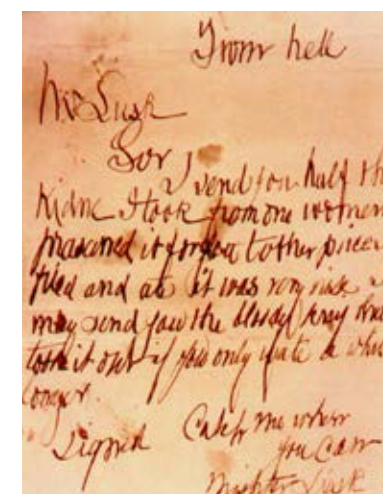 From hell
Mr Lusk
Sor
I send you half th
Kidne I took from one women
prasarved it for you tother piece
fried and ate it was very nise
may send you the bloody knif tha
took it out if you only wate a whil
longer.
signed Catch me when
you can
Mishter Lusk